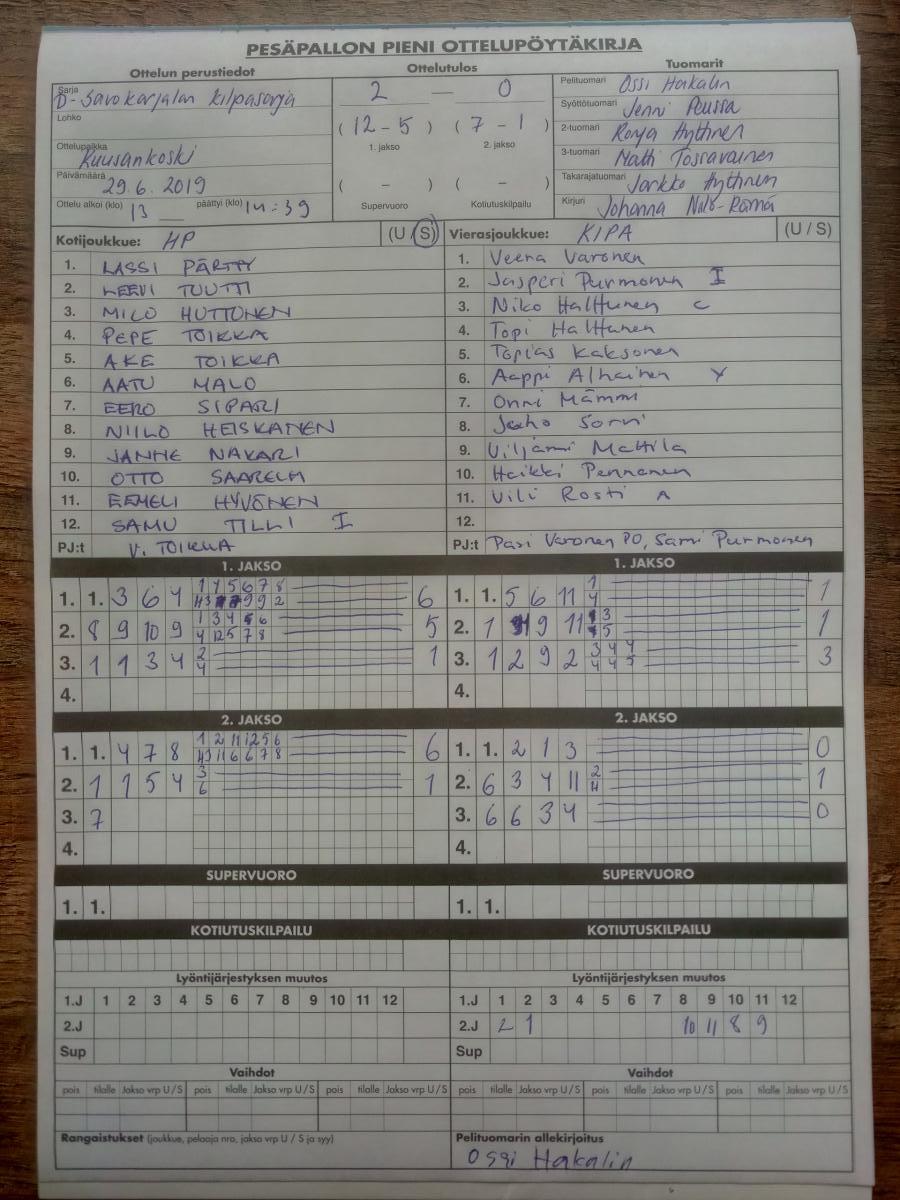 PESÄPALLON PIENI OTTELUPÖYTÄKIRJA
Ottelun perustiedot
Ottelutulos
Tuomarit
Sarja D-Savokarjalan kilpasarja
Lohko
Ottelupaikka Kuusankoski
Päivämäärä 29.6.2019
Ottelu alkoi (klo) 13 päättyi (klo) 14:39
2 — 0
(12-5) (7-1)
1. jakso 2. jakso
( - ) ( - )
Supervuoro Kotiutuskilpailu
Pelituomari Ossi Hakalin
Syöttötuomari Jenni Peussa
2-tuomari Ronja Hythnen
3-tuomari Matti Tossavainen
Takarajatuomari Jarkko Hythnen
Kirjuri Johanna Nilo-Rämä
Kotijoukkue: HP (U / S)
1. LASSI PÄRTTY
2. LEEVI TUUTTI
3. MILO HUTTONEN
4. PEPE TOIKKA
5. AKE TOIKKA
6. AATU MALO
7. EERO SIPARI
8. NIILO HEISKANEN
9. JANNE NAKARI
10. OTTO SAARELA
11. EEMELI HYVÖNEN
12. SAMU TILLI I
PJ:t V. TOIKKA
Vierasjoukkue: KIPA (U / S)
1. Veera Varonen
2. Jasperi Purmonen I
3. Niko Halttunen c
4. Topi Halttunen
5. Topias Kaksonen
6. Aappi Alhainen Y
7. Onni Mämmi
8. Juho Sorvi
9. Viljami Mattila
10. Heikki Pennanen
11. Vili Rosti A
12.
PJ:t Pasi Varonen PO, Sami Purmonen
1. JAKSO
1. 1. 3 6 4 6
2. 8 9 10 9 1 3 4 5 6 5
4 12 5 7 8
3. 1 1 3 4 2 1
4
4.
1. JAKSO
1. 1. 5 6 11 1 1
4
2. 1 9 11 3 1
5
3. 1 2 9 2 3 4 4 3
4.
2. JAKSO
1. 1. 4 7 8 1 2 11 12 5 6 6
11 6 6 7 8
2. 1 1 5 4 3 1
6
3. 7
4.
2. JAKSO
1. 1. 2 1 3 0
2. 6 3 4 11 2 1
11
3. 6 6 3 4 0
4.
SUPERVUORO
1. 1.
SUPERVUORO
1. 1.
KOTIUTUSKILPAILU
KOTIUTUSKILPAILU
Lyöntijärjestyksen muutos
1.J 1 2 3 4 5 6 7 8 9 10 11 12
2.J
Sup
Lyöntijärjestyksen muutos
1.J 1 2 3 4 5 6 7 8 9 10 11 12
2.J 2 1 10 11 8 9
Sup
Vaihdot
pois tilalle Jakso vrp U / S pois tilalle Jakso vrp U / S pois tilalle Jakso vrp U / S
Vaihdot
pois tilalle Jakso vrp U / S pois tilalle Jakso vrp U / S pois tilalle Jakso vrp U / S
Rangaistukset (joukkue, pelaaja nro, jakso vrp U / S ja syy)
Pelituomarin allekirjoitus
Ossi Hakalin